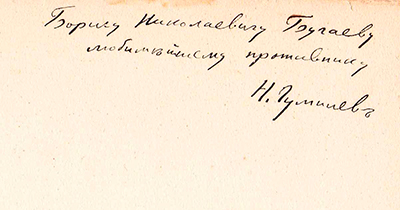 Борису Николаевичу Бугаеву
любимѣйшему противнику
Н. Гумилевъ